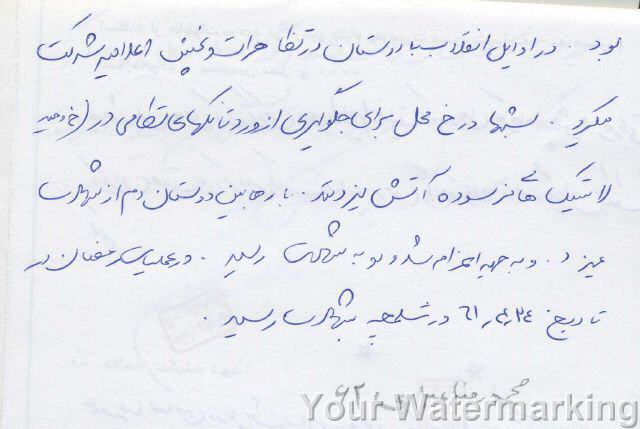 بود. در اوایل انقلاب با دوستان در تظاهرات و پخش اعلامیه شرکت
میکرد. شبها در خ محل برای جلوگیری از ورود تانکهای نظامی در (خ وحید
لاستیک های فرسوده آتش میزدند. بارها بین دوستان دم از شهادت
میزد. و به جبهه اعزام شد و به شهادت رسید. در عملیات رمضان در
تاریخ ۶۱،۴،۲۴ در شلمچه بشهادت رسید.
محمد
Your Watermarking